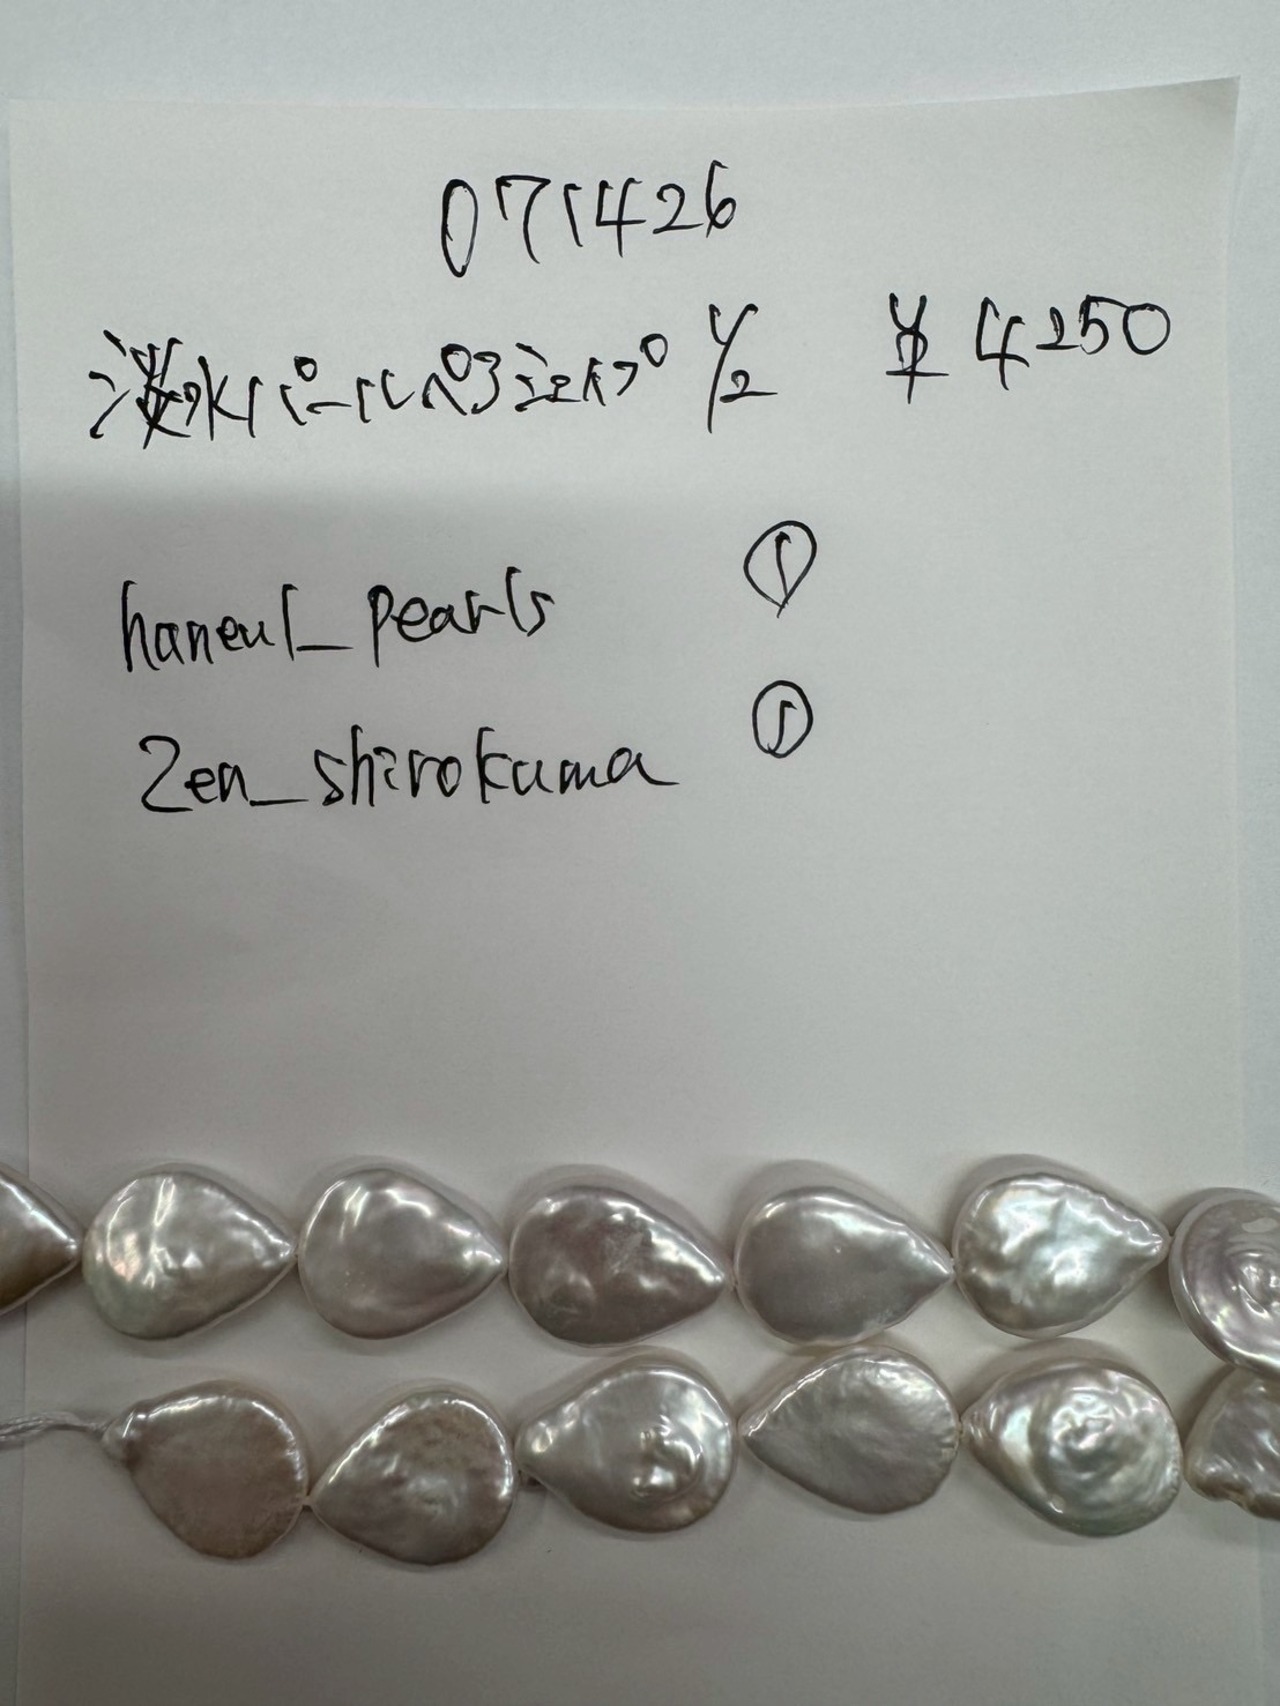 071426
淡水パールペアシェイプ 1/2 ¥4250
haneul_pearls ①
zen_shirokuma ①